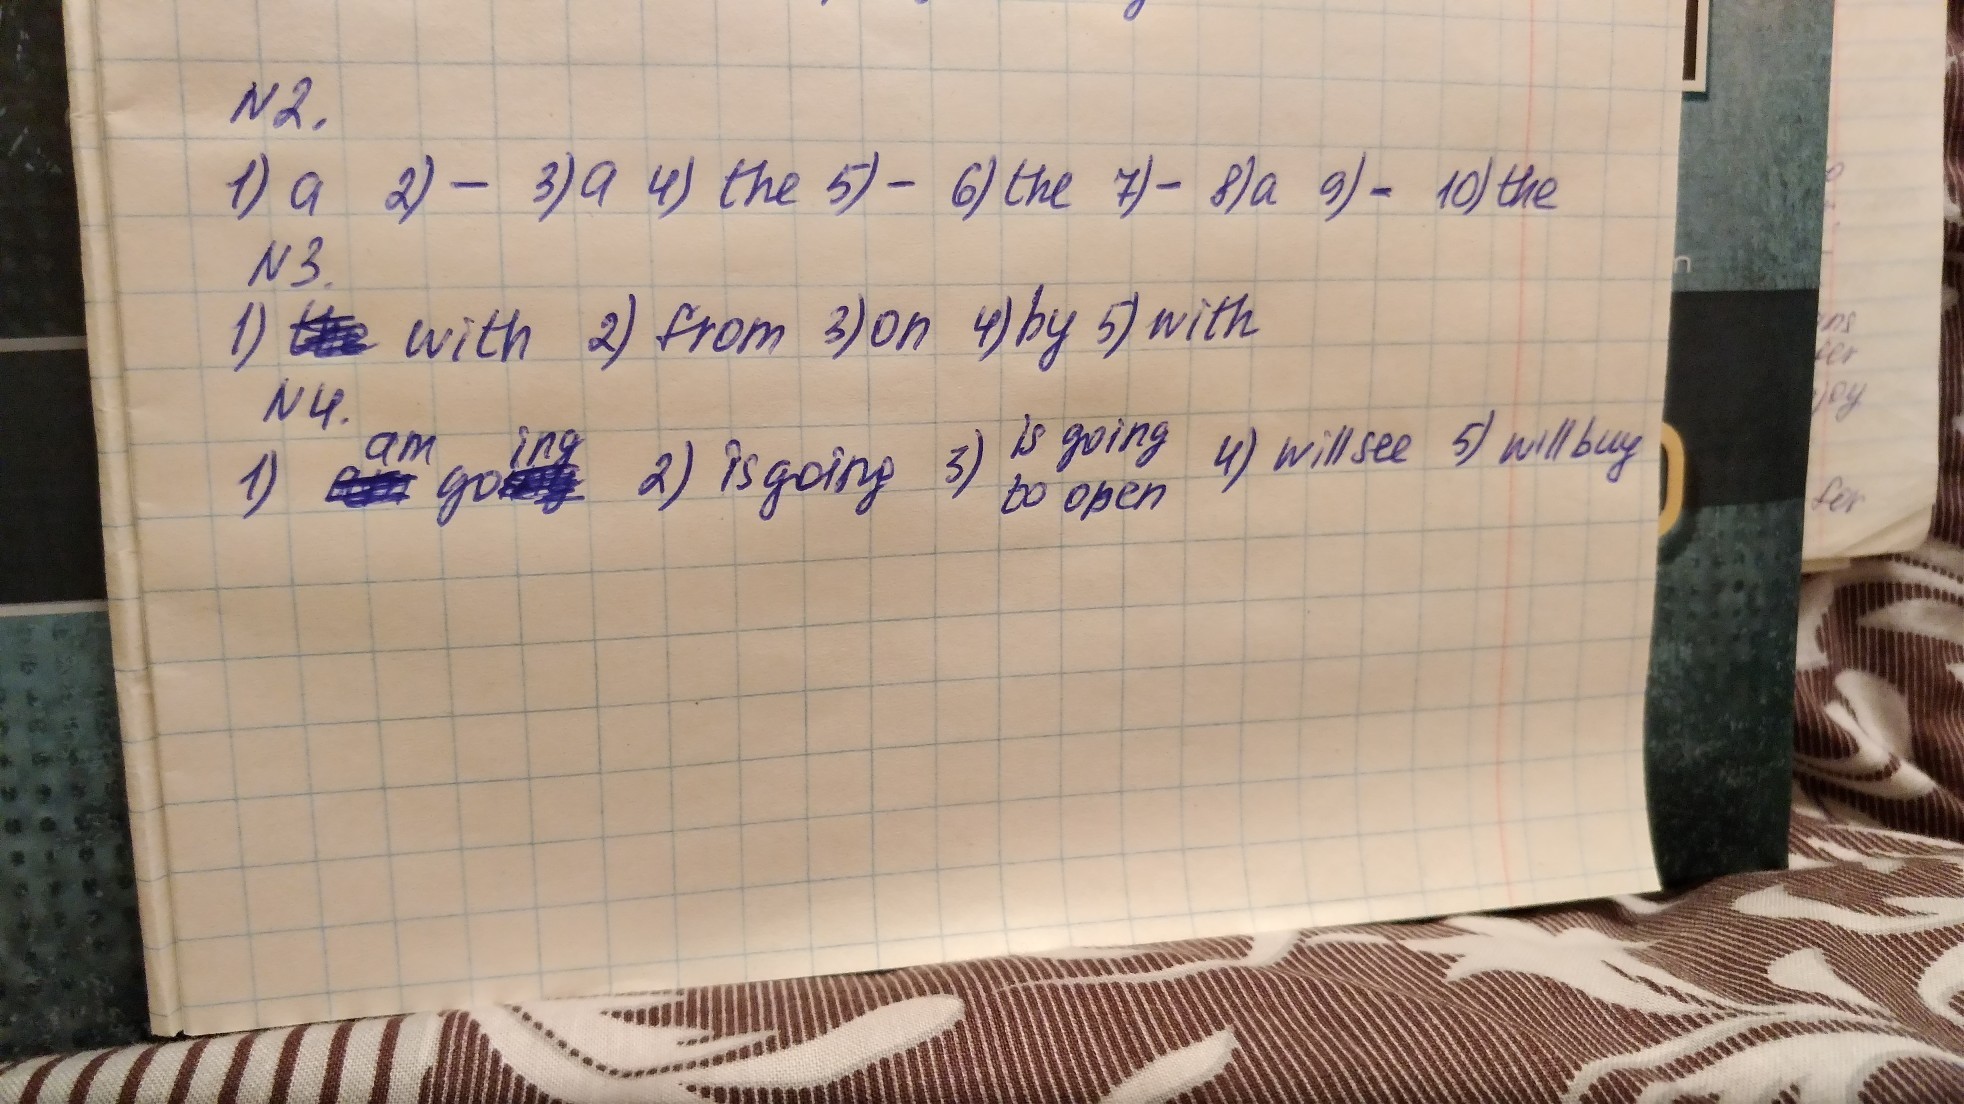 N2.
1) a 2) – 3) a 4) the 5) – 6) the 7) – 8) a 9) – 10) the
N3.
1) with 2) from 3) on 4) by 5) with
N4.
1) am going 2) is going 3) is going to open 4) will see 5) will buy
for